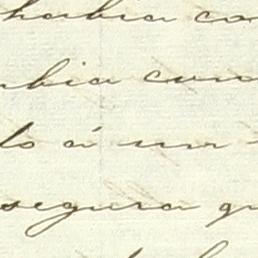 habia co
bia cum
to á un
segura qu